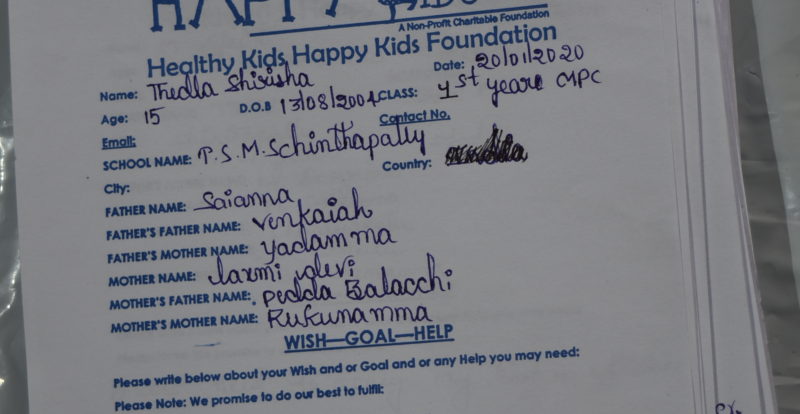 HAPPY KIDS
A Non-Profit Charitable Foundation
Healthy Kids Happy Kids Foundation
Date: 20/01/2020
Name: Thedla Shirisha
Age: 15 D.O.B 13/08/2004 CLASS: 1st year MPC
Email: Contact No.
SCHOOL NAME: T.S.M.Schinthapally
City: Country:
FATHER NAME: Saianna
FATHER'S FATHER NAME: Venkaiah
FATHER'S MOTHER NAME: Yadamma
MOTHER NAME: laxmi devi
MOTHER'S FATHER NAME: Pedda Balacchi
MOTHER'S MOTHER NAME: Rukunamma
WISH—GOAL—HELP
Please write below about your Wish and or Goal and or any Help you may need:
Please Note: We promise to do our best to fulfil: